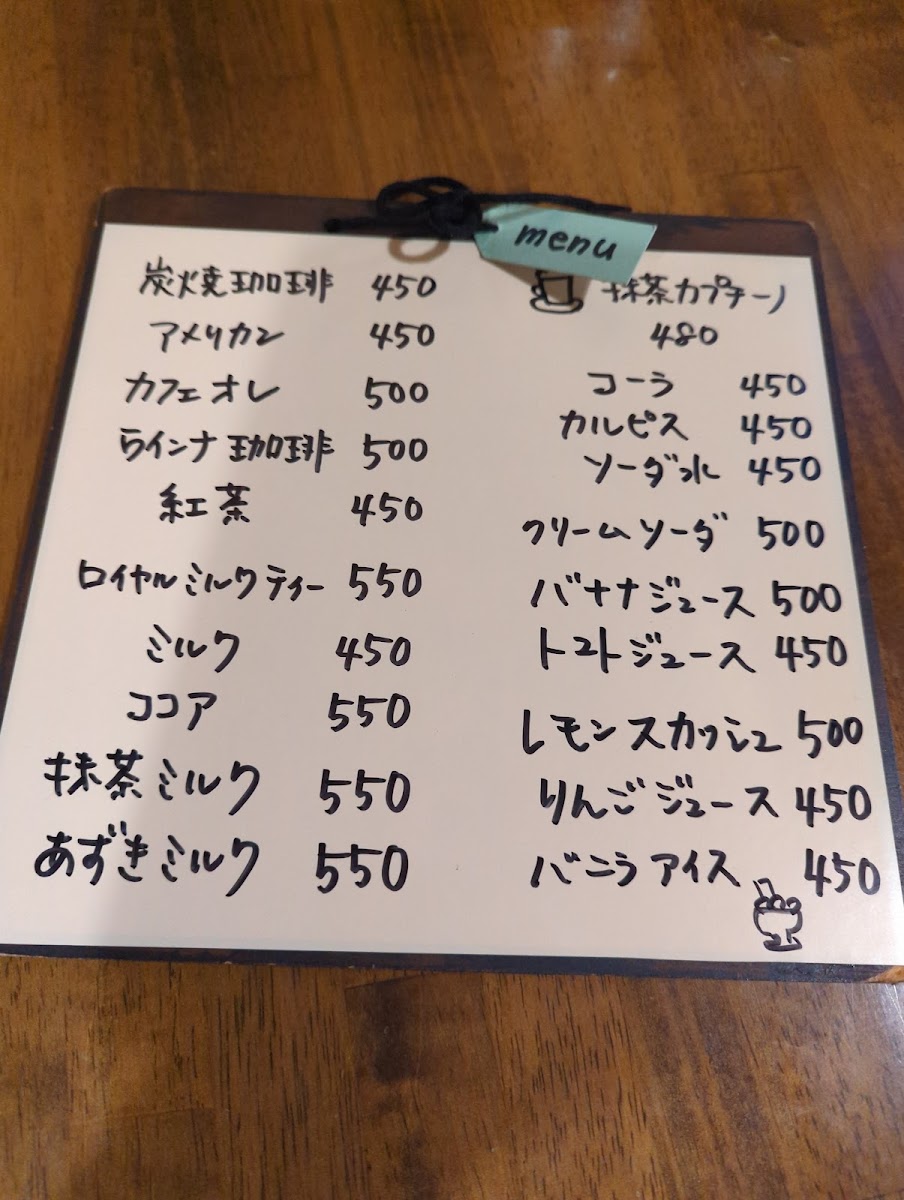 menu
炭火焼珈琲 450
アメリカン 450
カフェオレ 500
ウインナ珈琲 500
紅茶 450
ロイヤルミルクティー 550
ミルク 450
ココア 550
抹茶ミルク 550
あずきミルク 550
抹茶カプチーノ
480
コーラ 450
カルピス 450
ソーダ水 450
クリームソーダ 500
バナナジュース 500
トマトジュース 450
レモンスカッシュ 500
りんごジュース 450
バニラアイス 450